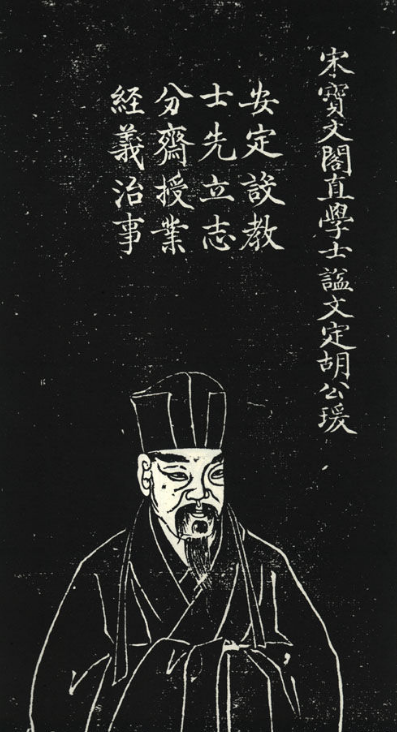 宋寶文閣直學士諡文定胡公瑗
安定設教
士先立志
分齋授業
経義治事